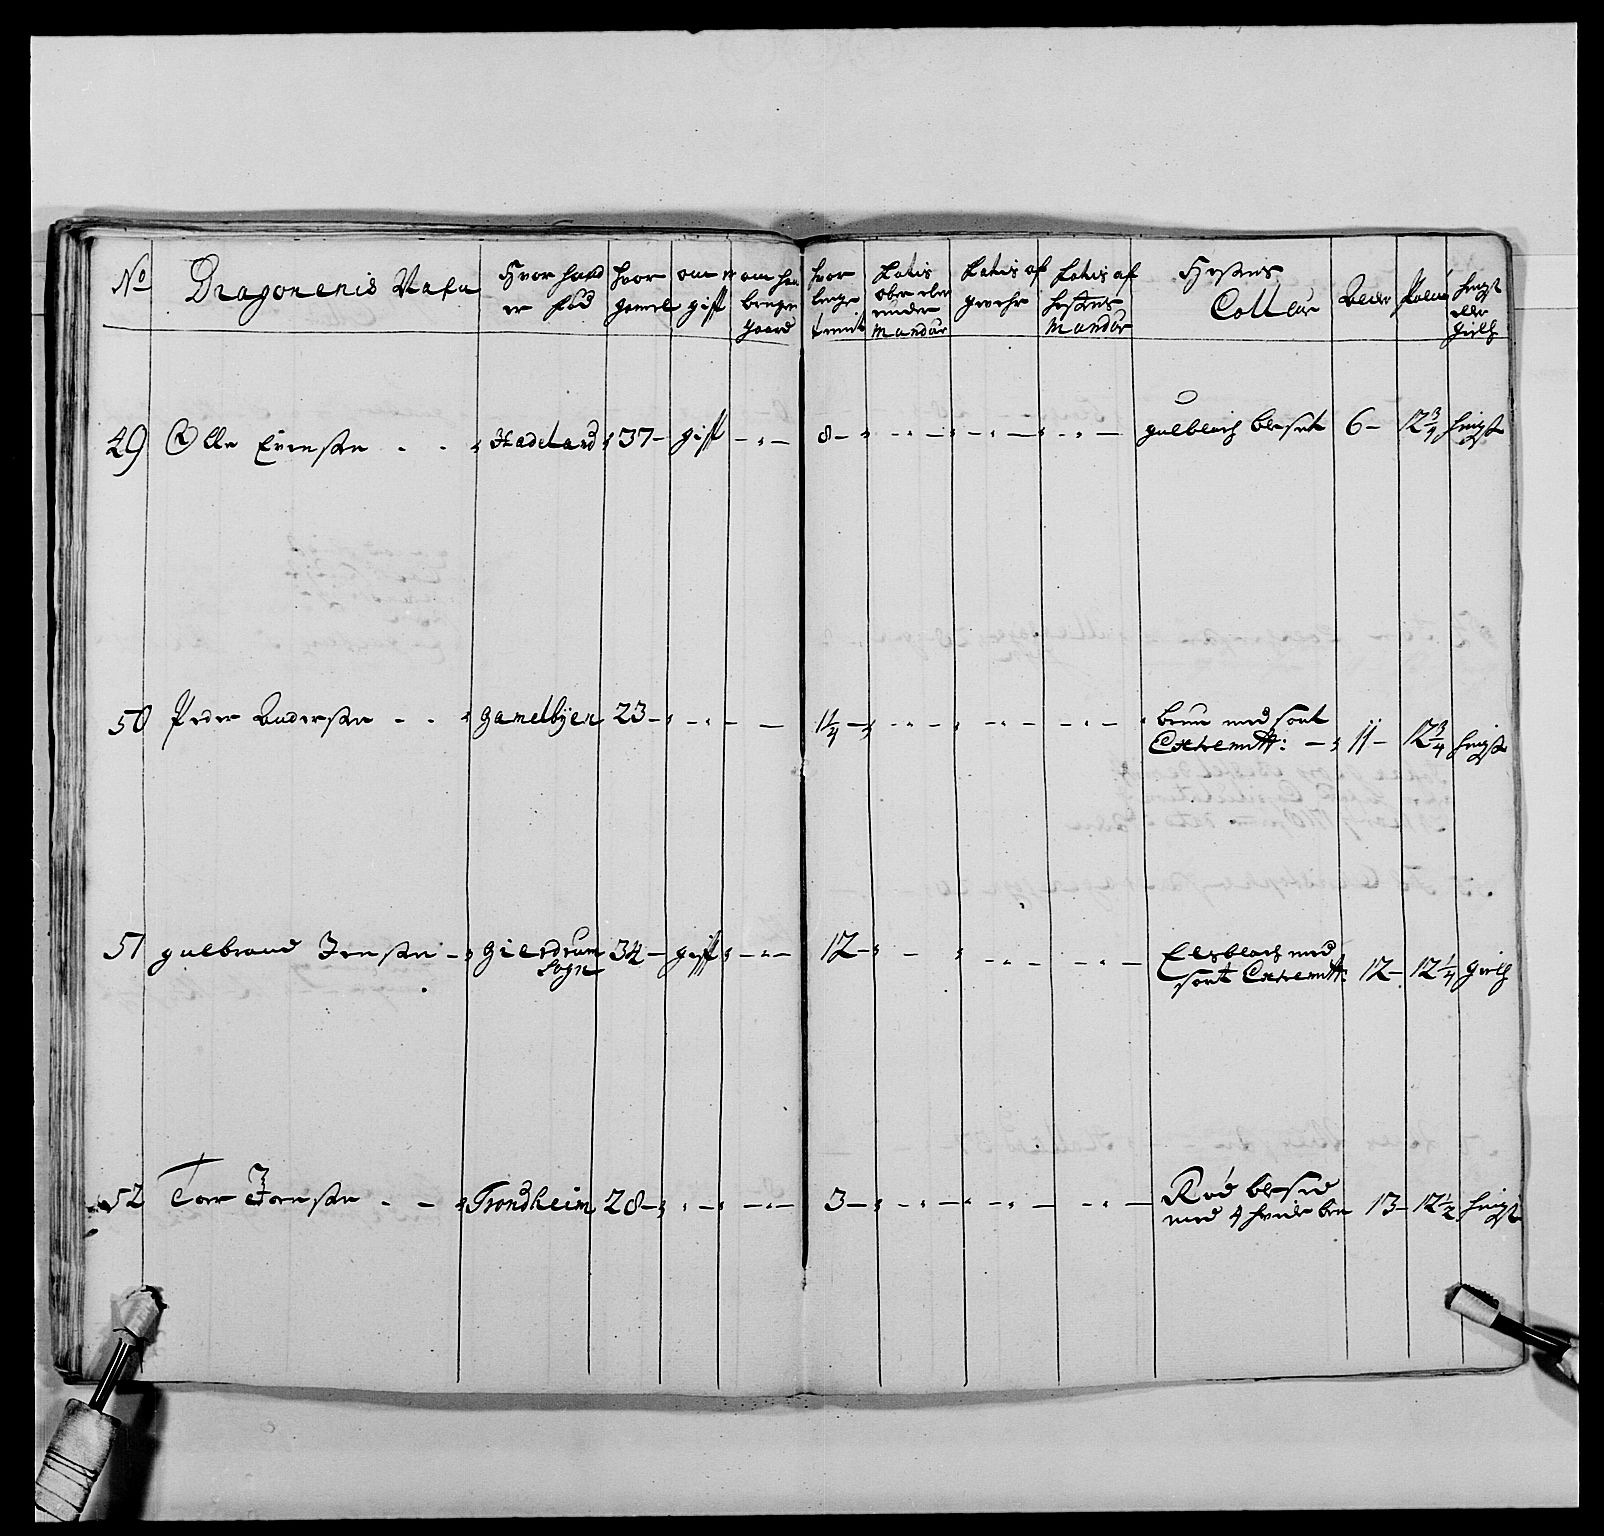 No
Dragonenis Nafn
Hvor hand
er fød
hvor
gamel
om er
gift
om han
bruger
gaard
hvor
lenge
tient
Latis
ober eller
under
Mandur
Latis af
gevehr
Latis af
hestens
Mandur
Hestens
Colleur
Alder
hingst
eller
gield
49 Olle Evensen - - Hadeland 37 - gift - - 8 - - - - gulblach bleset 6 - 12 3/4 hingst
50 Peder Andersen - - gamelbyen 23 - - - 1 1/4 - - - - brun med sort
Extremitt: - 11 - 12 3/4 hingst
51 gulbrand Jensen - Gierdrum 34 - gift - - 12 - - - - blach med
Sogn
sort Extremitt: 12 - 12 1/4 gield
52 Tor Joensen - - Trondheim 28 - - - 3 - - - - Rød bleset
med 4 hvide ben 13 - 12 1/2 hingst